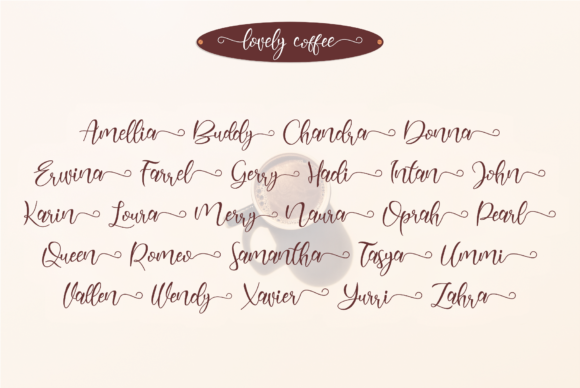 lovely coffee
Amellia Buddy Chandra Donna
Erwina Farrel Gerry Hadi Intan John
Karin Loura Merry Naura Oprah Pearl
Queen Romeo Samantha Tasya Ummi
Vallen Wendy Xavier Yurri Zahra